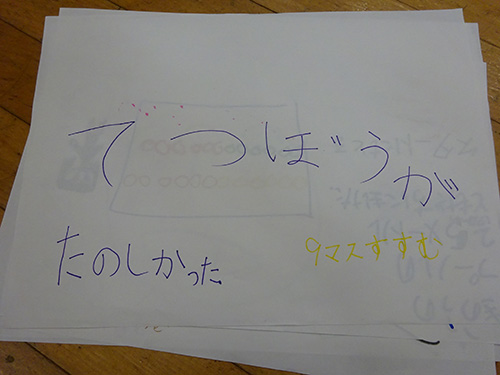 てつぼうが
たのしかった
9マスすすむ